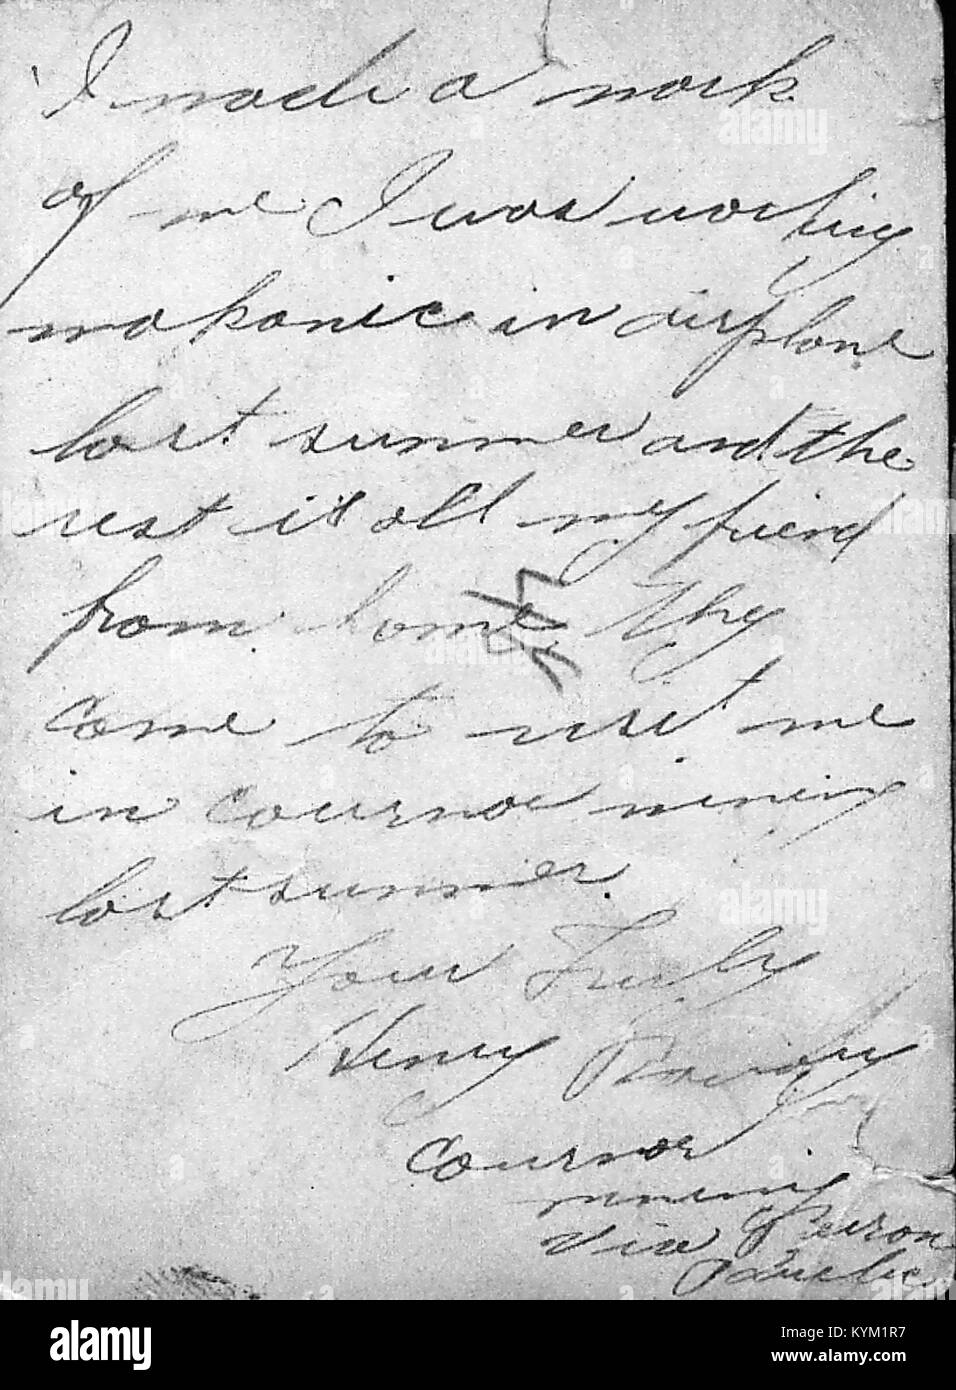 I made a mark
of me I was working
makanic in airplane
last summer and the
rest is all my friend
from home they
come to visit me
in Cournor mining
last summer.
Your Truly
Henry
Cournor
mining
Via Perron
Quebec
alamy
Image ID: KYM1R7
www.alamy.com